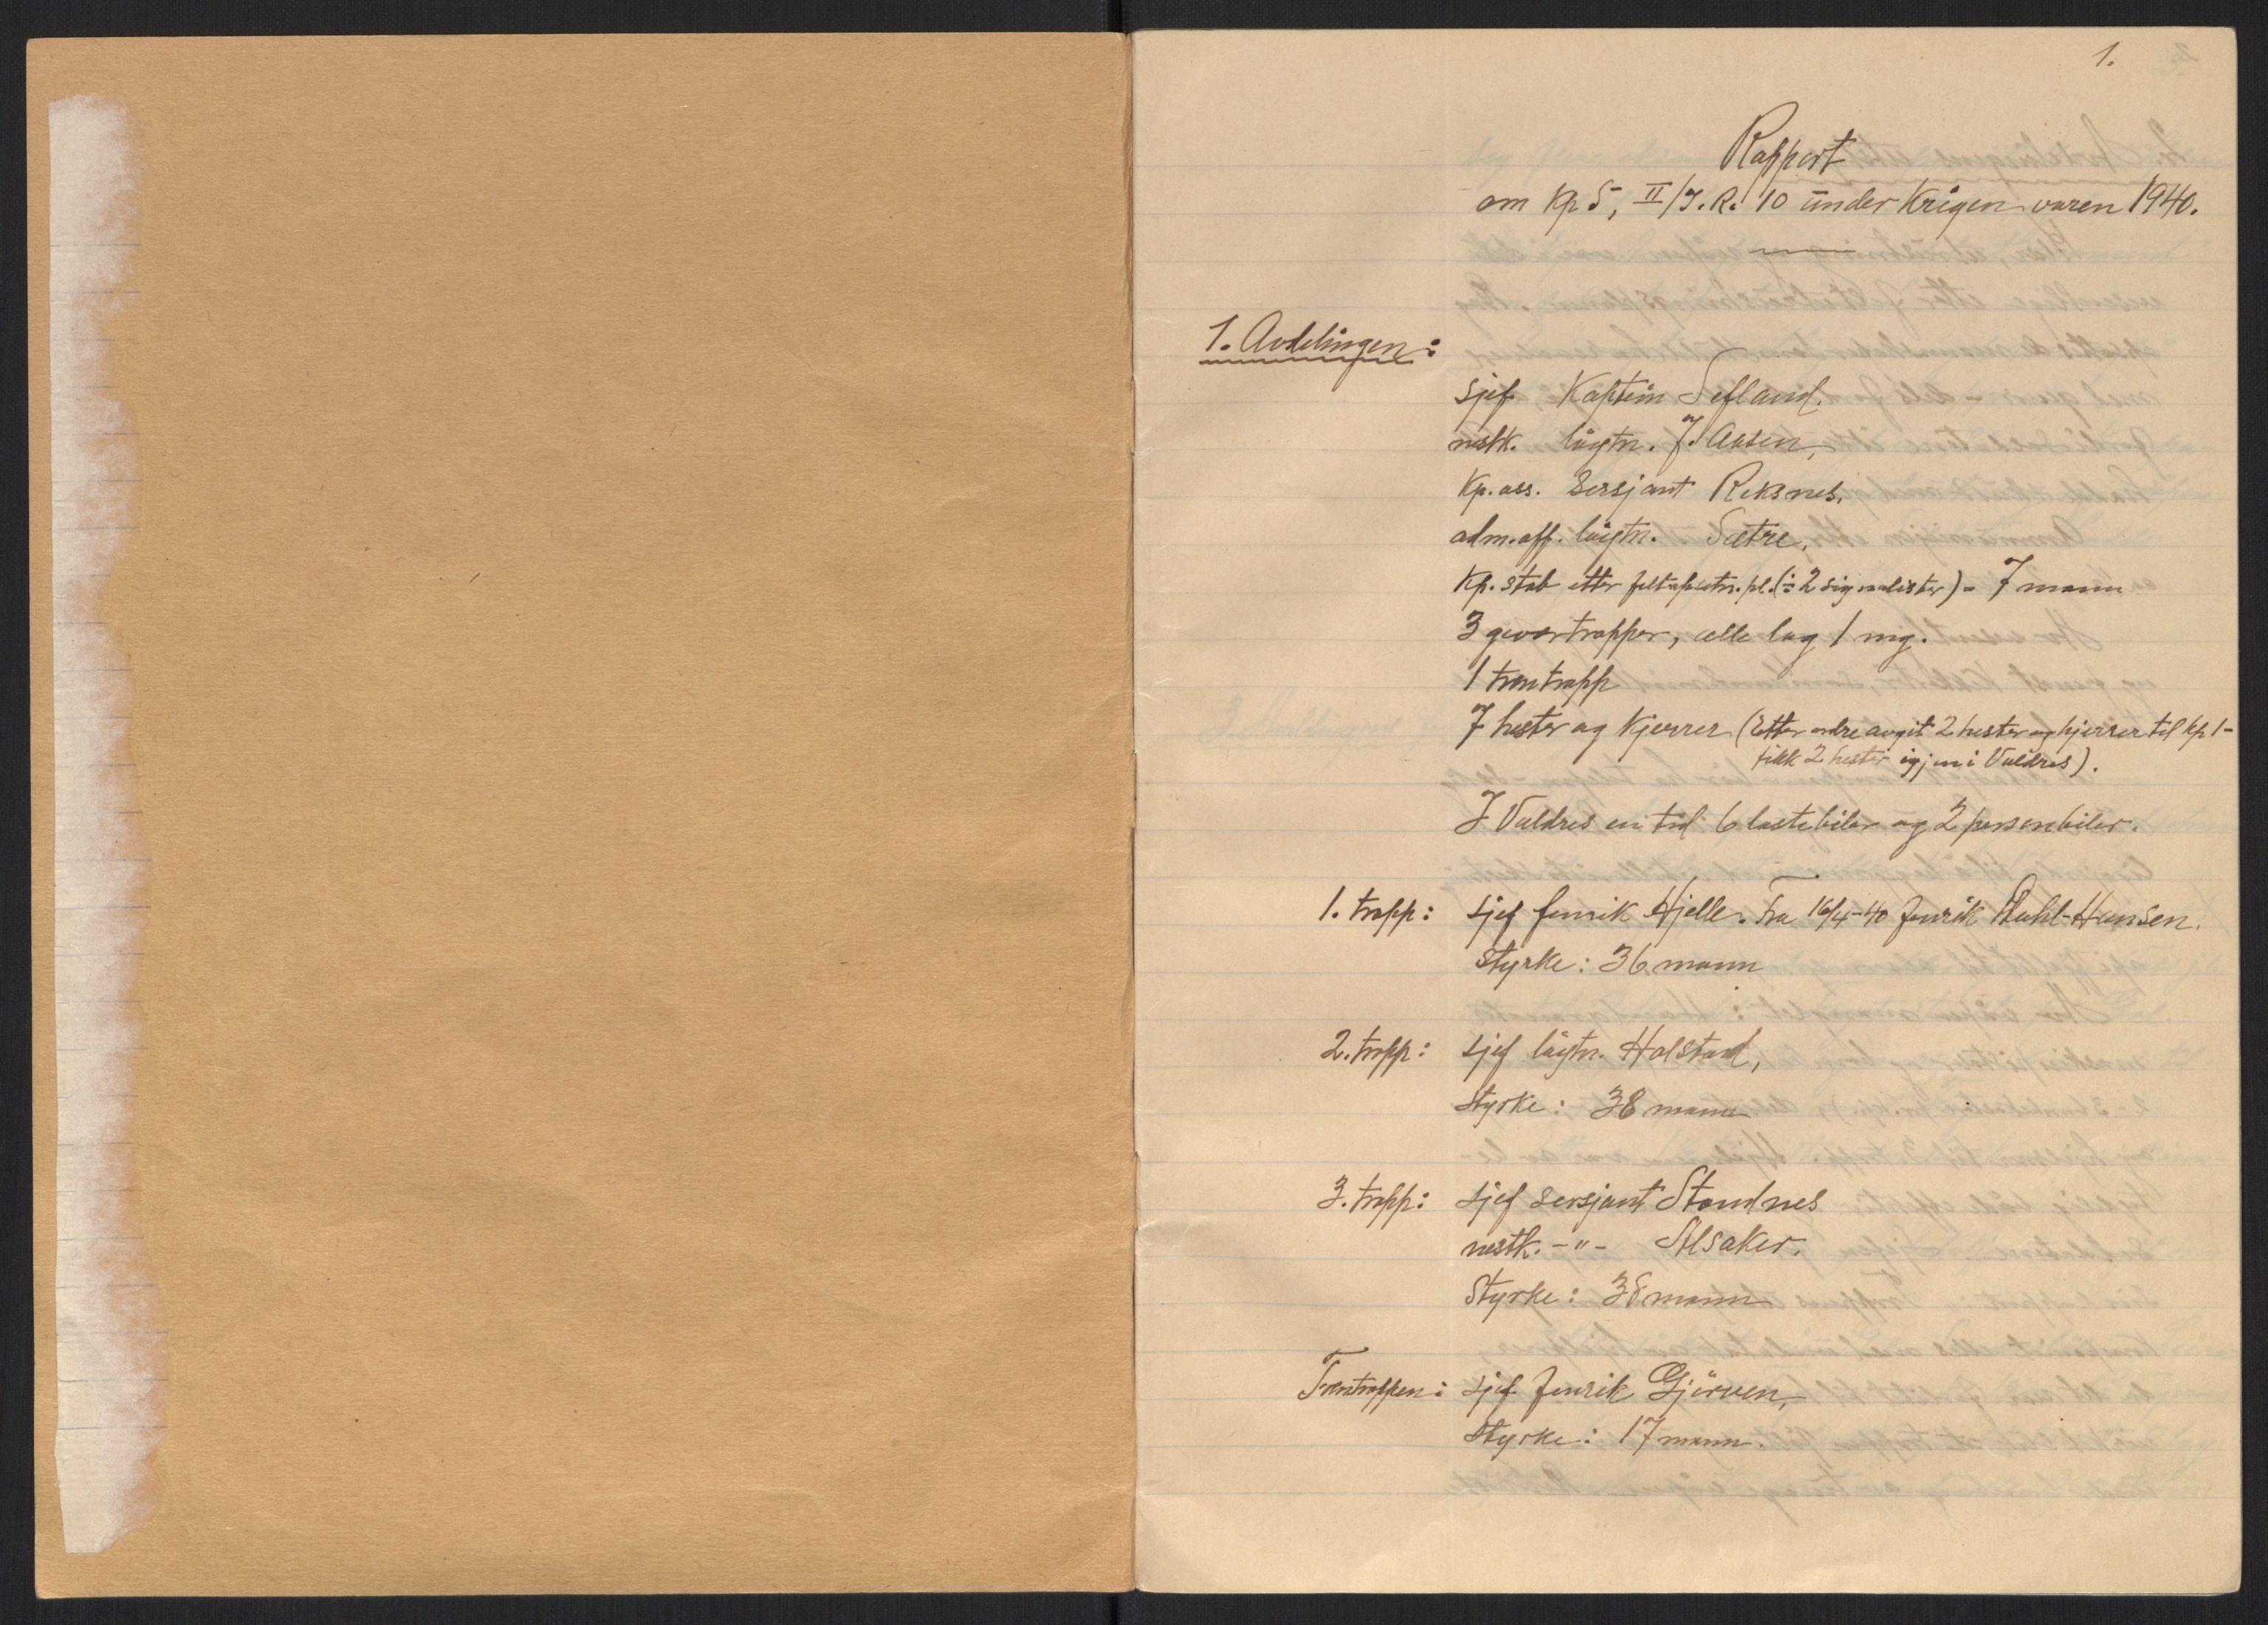 1.
Rapport
om Kp 5, II/J.R. 10 under Krigen våren 1940.
1. Avdelingen:
sjef Kaptein Sefland.
nestk. løytn. J. Aasen,
Kp. ass. Sersjant Reksnes.
adm. off. løytn. Sætre.
Kp. stab etter feltoppsetn. pl. (÷ 2 signalister) = 7 mann
3 geværtropper, alle lag 1 mg.
1 trentropp
7 hester og kjerrer (Etter ordre avgit 2 hester og kjerrer til kp 1-
fikk 2 hester igjen i Valdres).
I Valdres en tid 6 lastebiler og 2 personbiler.
1. tropp: sjef fenrik Hjelle. Fra 16/4-40 fenrik Dahl-Hansen.
styrke: 36 mann
2. tropp: sjef løytn. Halstad,
styrke: 38 mann
3. tropp: sjef sersjant Strandnes
nestk. -"- Alsaker.
Styrke: 38 mann
Trentroppen: sjef fenrik Gjørven,
Styrke: 17 mann.